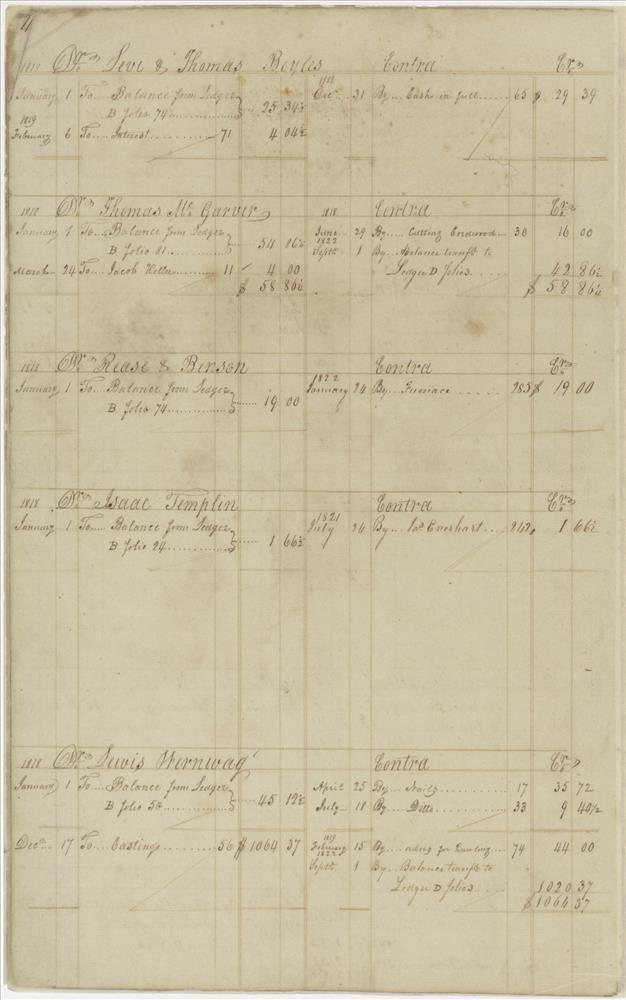 1818 Dr. Levi & Thomas Beyles Contra Cr.
January 1 To Balance from Ledger B folio 74 25 34½ 1818 Decr. 31 By Cash in full 65 $ 29 39
1819 February 6 To Interest 71 4 04½
1818 Dr. Thomas Mc Garvir Contra Cr.
January 1 To Balance from Ledger B folio 81 54 86½ 1818 June 29 By Cutting Cordwood 30 16 00
March 24 To Jacob Keller 11 4 00 1822 Septr. 1 By Balance transfd. to Ledger D folio 3 42 86½
$ 58 86½ $ 58 86½
1818 Dr. Rease & Benson Contra Cr.
January 1 To Balance from Ledger B folio 74 19 00 1822 January 24 By Furnace 283 $ 19 00
1818 Dr. Isaac Templin Contra Cr.
January 1 To Balance from Ledger B folio 24 1 66½ 1821 July 24 By Jas. Everhart 242 1 66½
1818 Dr. Lewis Wernwag Contra Cr.
January 1 To Balance from Ledger B folio 58 45 12½ April 25 By Nails 17 35 72
July 11 By Ditto 33 9 40½
Decr. 17 To Castings 56 $ 1064 37 1819 February 15 By for Hauling 74 44 00
1822 Septr. 1 By Balance transfd. to
Ledger D folio 3 1020 37
$ 1064 37